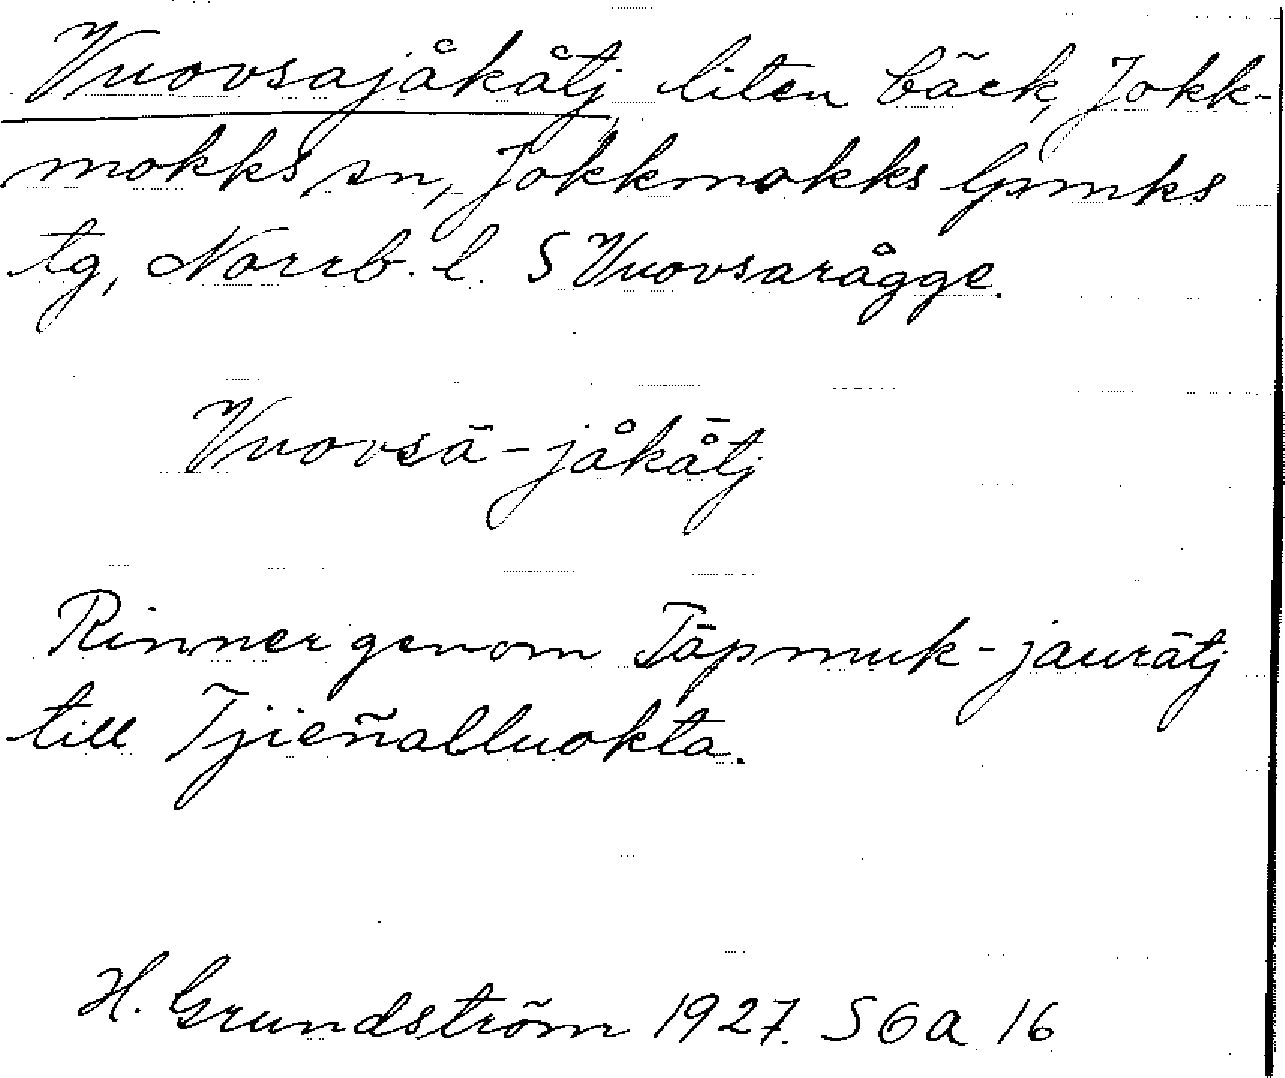 Vuovsajåkåtj liten bäck, Jokk-
mokks sn, Jokkmokks lpmks
tg, Norrb. l. S Vuovsarågge.
Vuovsā-jåkå̄tj
Rinner genom Tāpmuk-jaurātj
till Tjieñalluokta.
H. Grundström 1927. SGA 16